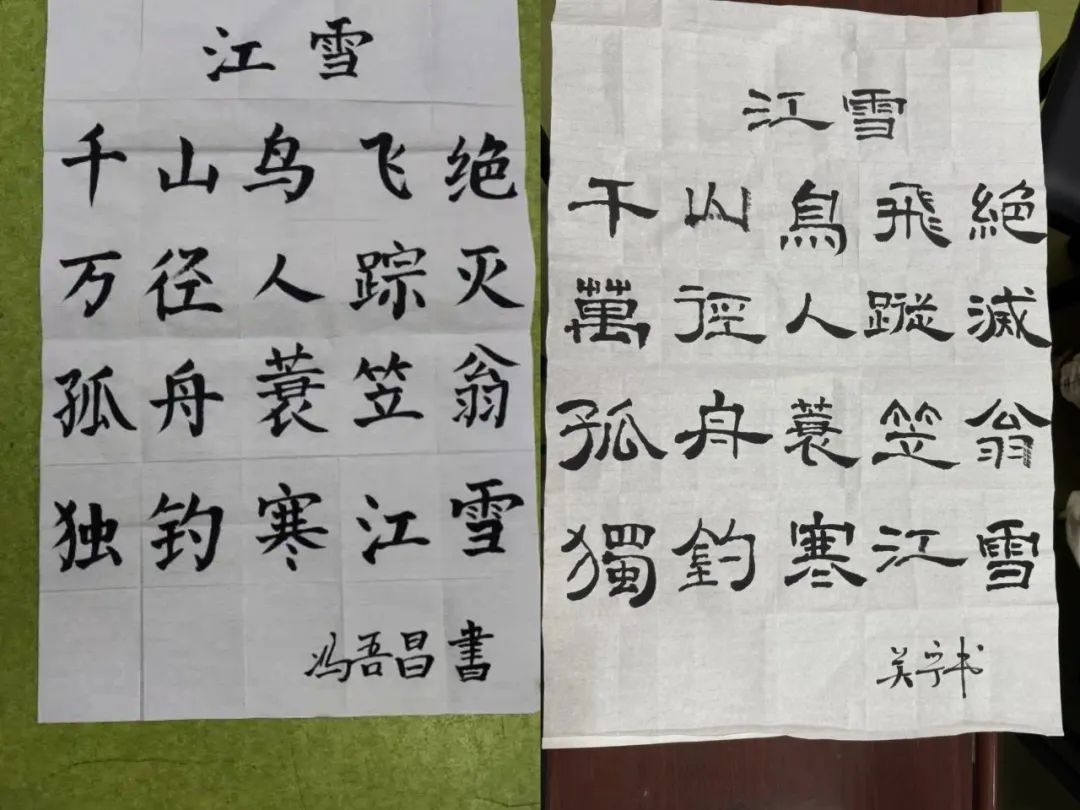 江雪
千山鸟飞绝
万径人踪灭
孤舟蓑笠翁
独钓寒江雪
冯吾昌書
江雪
千山鳥飛絕
萬徑人蹤滅
孤舟蓑笠翁
獨釣寒江雪
吴宁书